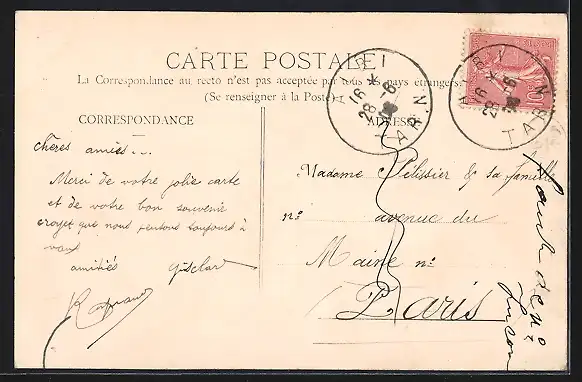 CARTE POSTALE
La Correspondance au recto n'est pas acceptée par tous les pays étrangers
(Se renseigner à la Poste)
CORRESPONDANCE
ADRESSE
chères amies...
Merci de votre jolie carte
et de votre bon souvenir
croyez que nous pensons toujours à
vous
amitiés
Madame Pelissier & sa famille
nº avenue du
Maine nº
Paris
TARN
16
28 -6
TARN
16
28 -6
10